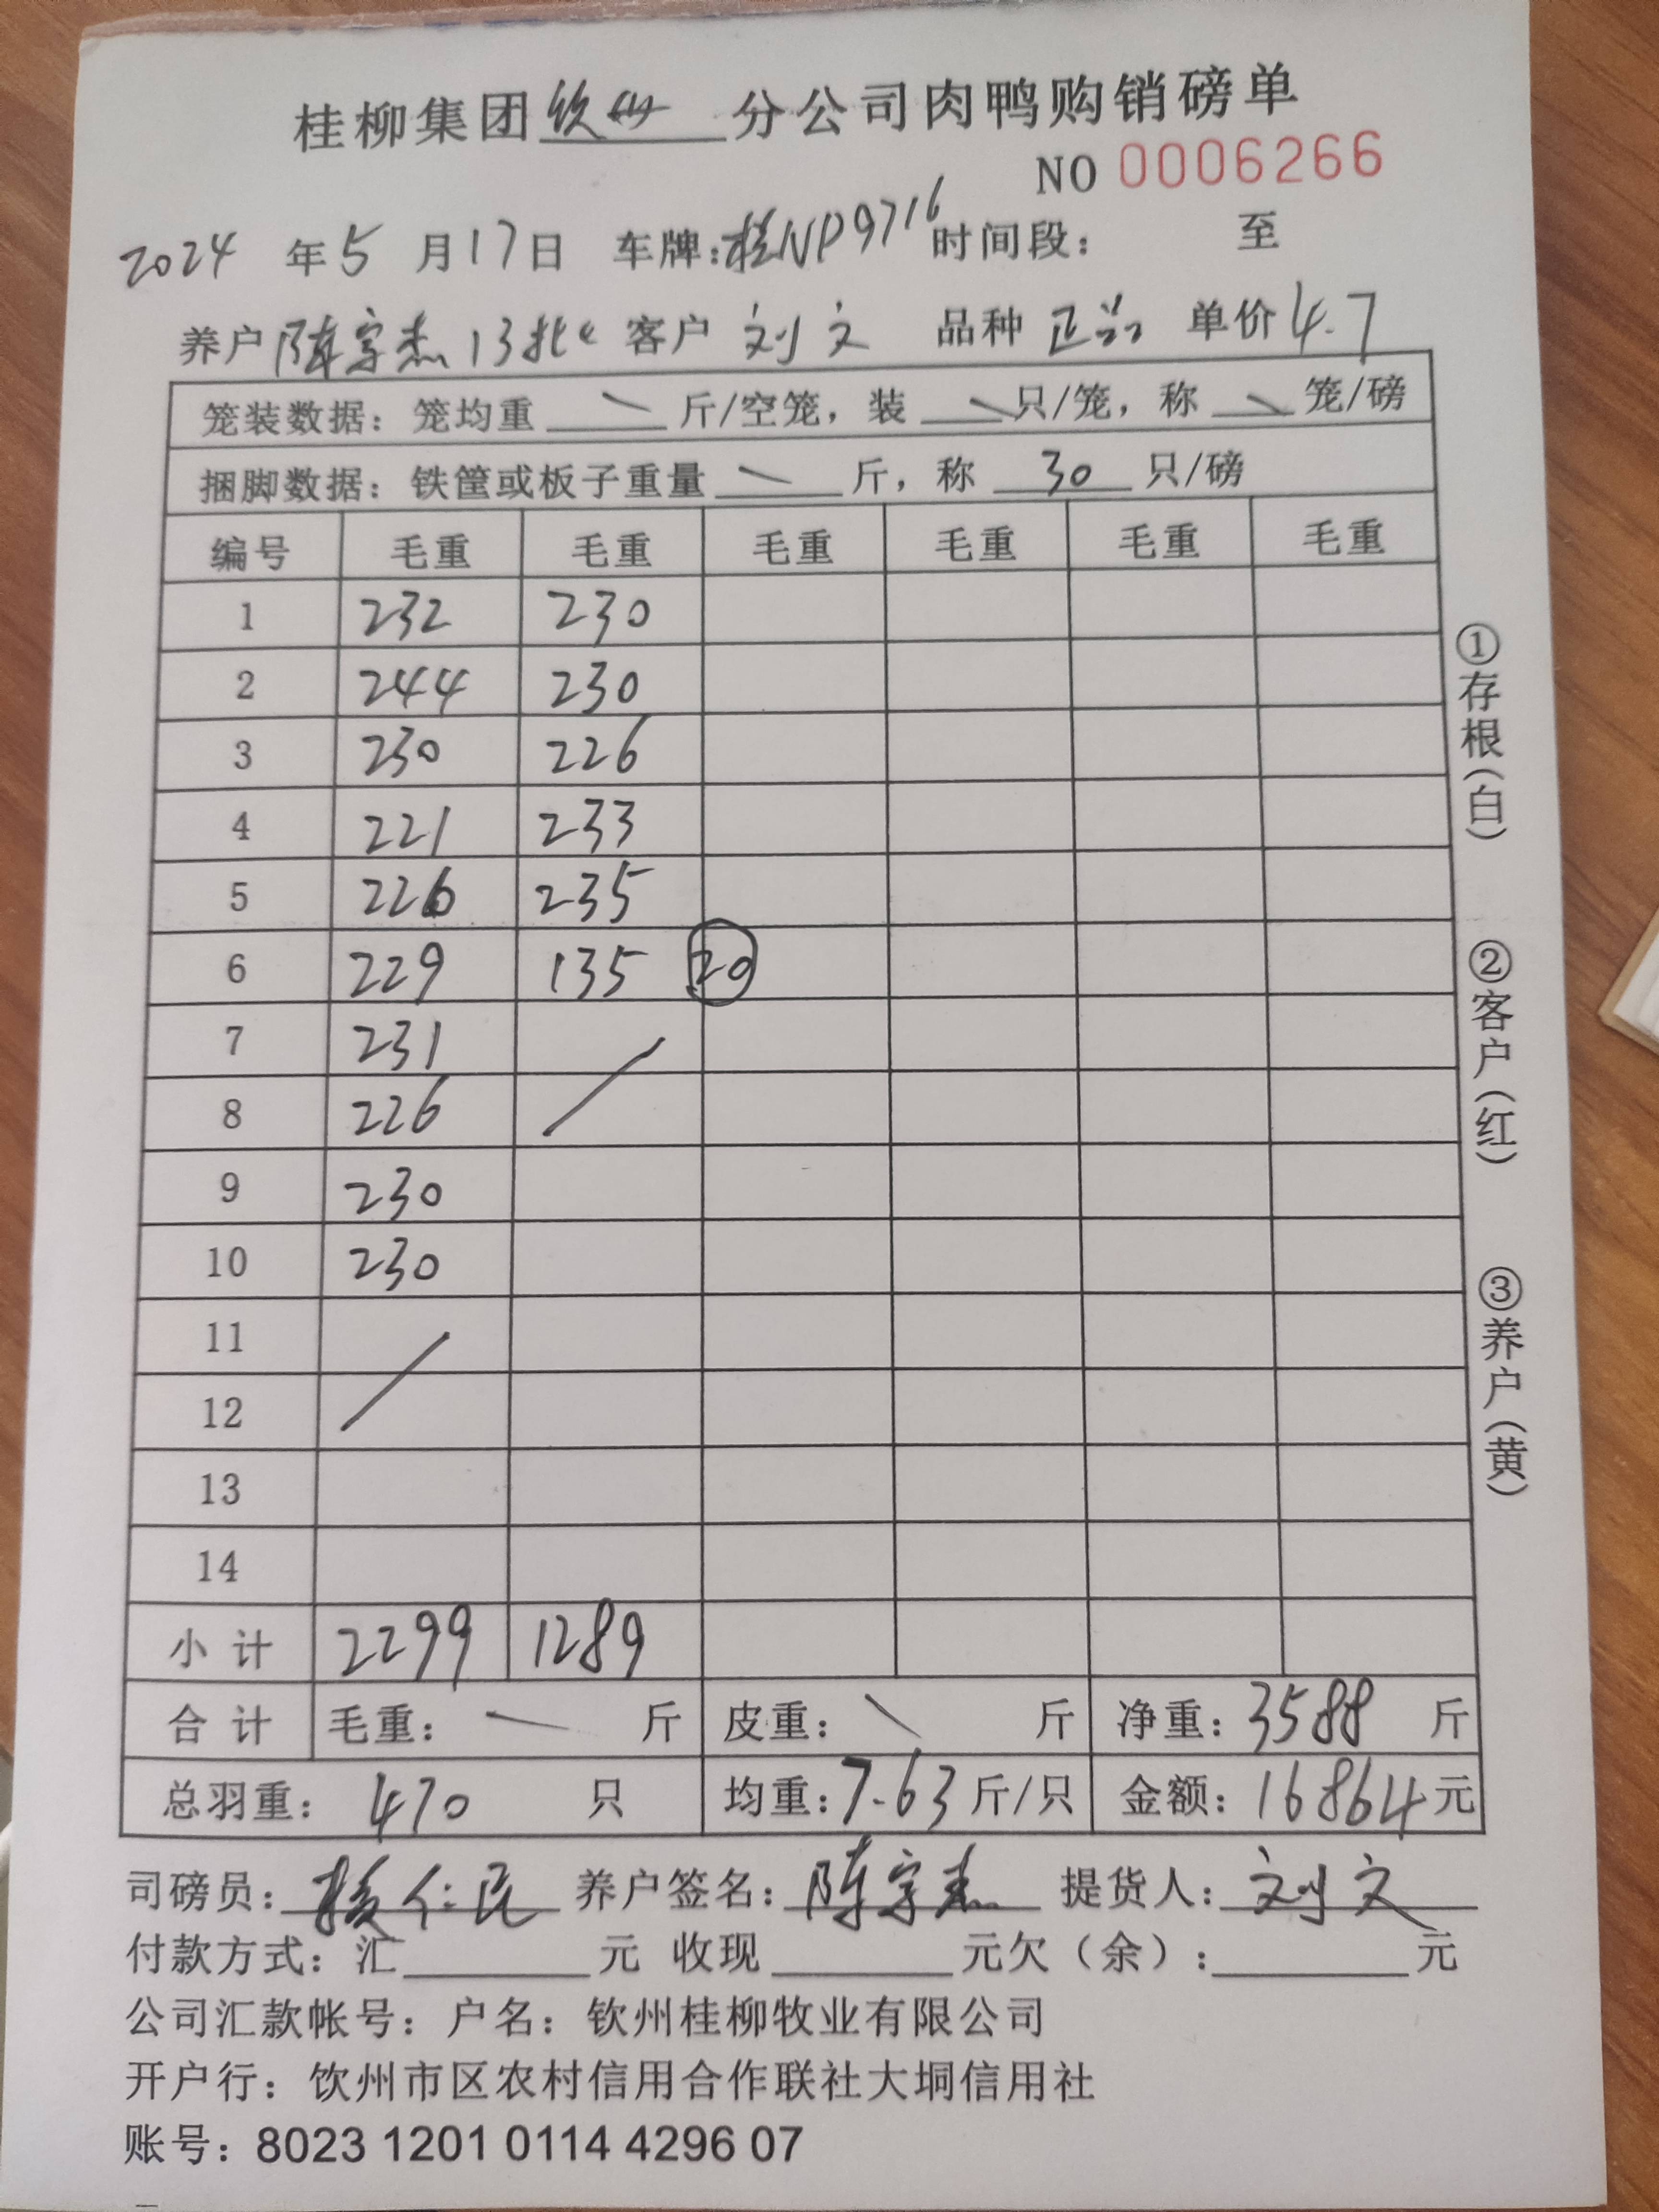 桂柳集团钦州分公司肉鸭购销磅单
NO 0006266
2024年5月17日 车牌:桂NP9716 时间段: 至
养户 陈宇杰 13批 客户 刘文 品种 正品 单价 4.7
笼装数据: 笼均重 \ 斤/空笼, 装 \ 只/笼, 称 \ 笼/磅
捆脚数据: 铁筐或板子重量 \ 斤, 称 30 只/磅
编号 毛重 毛重 毛重 毛重 毛重 毛重
1 232 230
2 244 230
3 230 226
4 221 233
5 226 235
6 229 135 20
7 231
8 226
9 230
10 230
11
12
13
14
小计 2299 1289
合计 毛重: \ 斤 皮重: \ 斤 净重: 3588 斤
总羽重: 470 只 均重: 7.63 斤/只 金额: 16864元
司磅员: 仁民 养户签名: 陈宇杰 提货人: 刘文
付款方式: 汇 元 收现 元欠(余): 元
公司汇款帐号: 户名: 钦州桂柳牧业有限公司
开户行: 饮州市区农村信用合作联社大垌信用社
账号: 8023 1201 0114 4296 07
①存根(白)
②客户(红)
③养户(黄)